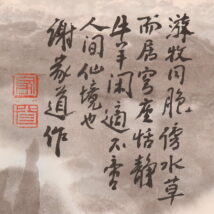 游牧同胞傍水草
而居穹庐恬静
牛羊闲適不啻
人间仙境也
谢家道作